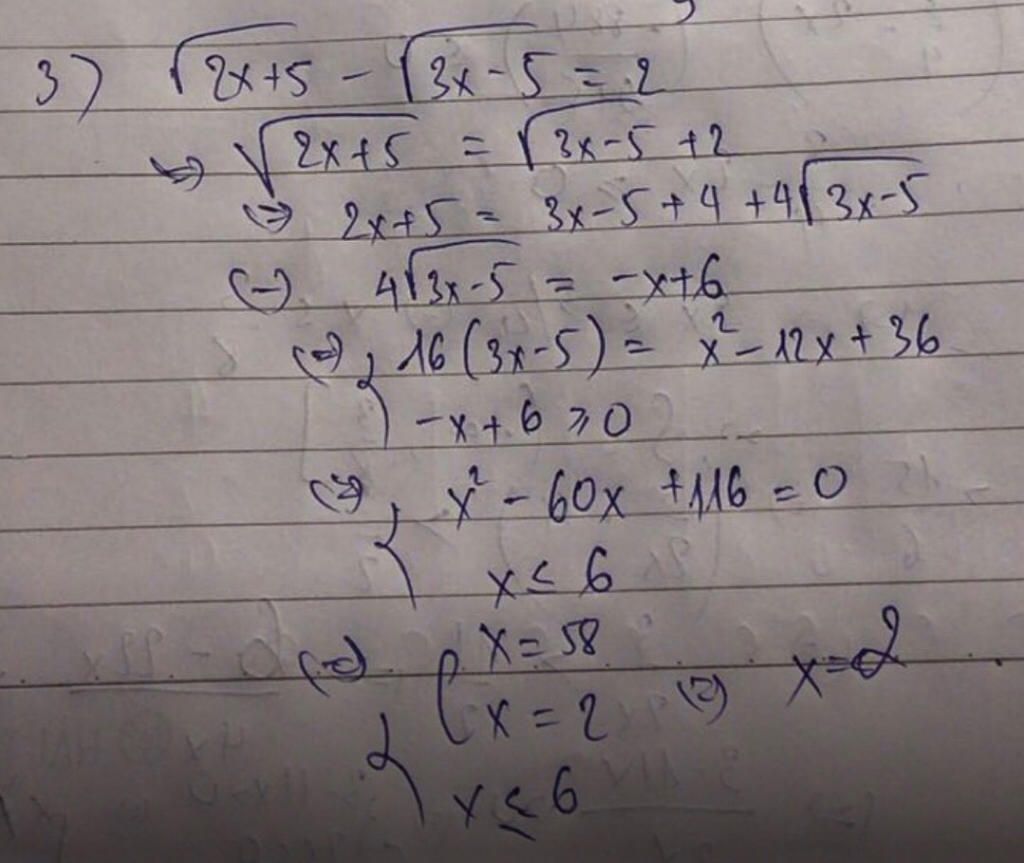 3) √(2x+5) - √(3x-5) = 2
⇔ √(2x+5) = √(3x-5) + 2
⇔ 2x+5 = 3x-5+4+4√(3x-5)
⇔ 4√(3x-5) = -x+6
⇔ { 16(3x-5) = x² - 12x + 36
-x+6 ⩾ 0
⇔ { x² - 60x + 116 = 0
x ≤ 6
⇔ { [ x = 58
x = 2 ⇔ x = 2
x ≤ 6